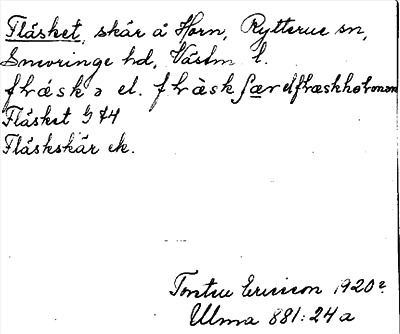 Fläsket, skär å Horn, Rytterne sn,
Snevringe hd, Västm l.
flä̀skə el. flä̀skʃær el flæskholmən
Fläsket G 84
Fläskskär ek.
Torsten Ericsson 1920?
Ulma 881:24a